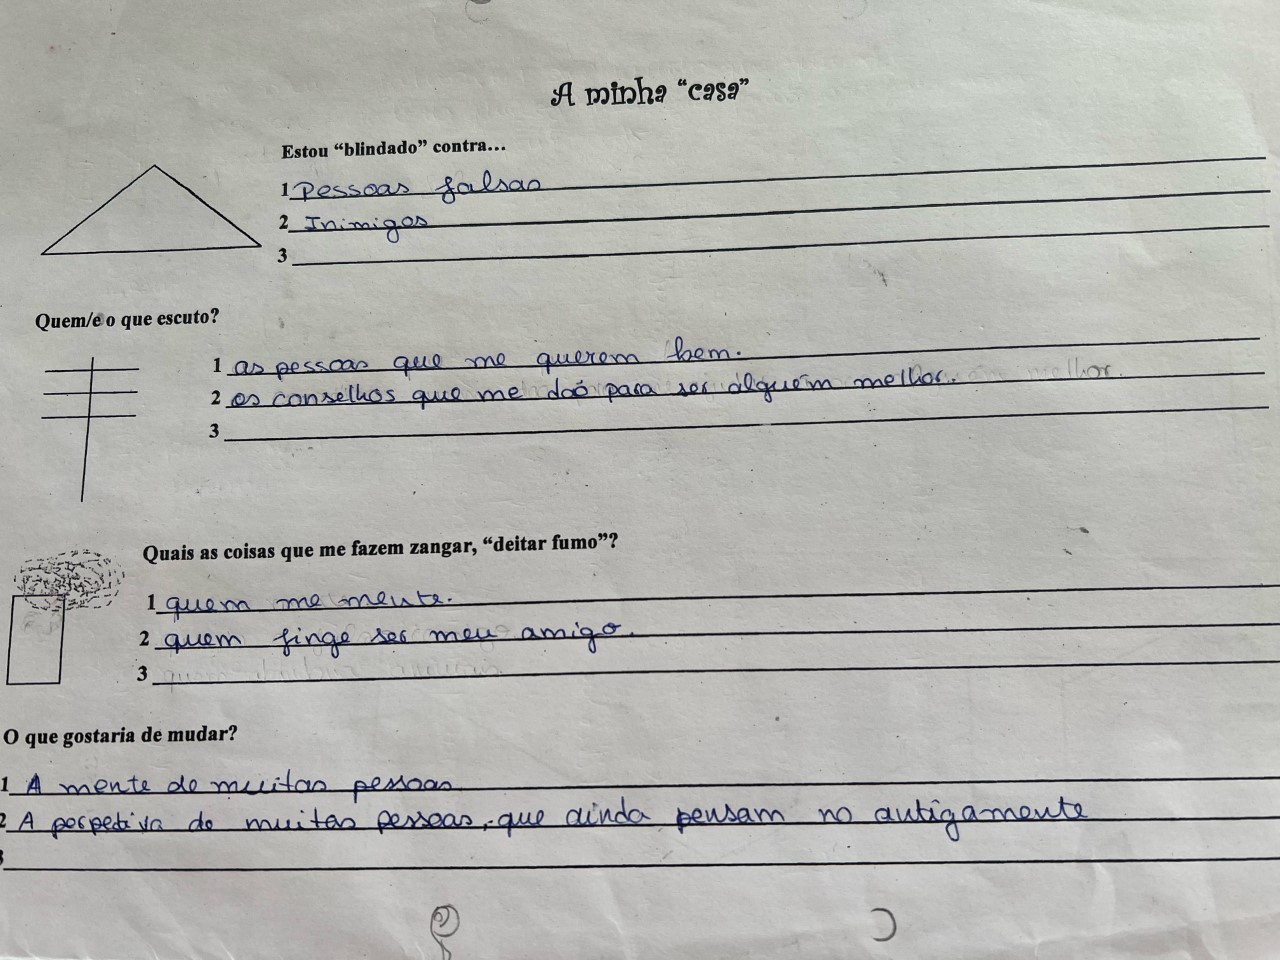 A minha “casa”
Estou “blindado” contra...
1 Pessoas falsas
2 Inimigos
3
Quem/e o que escuto?
1 as pessoas que me querem bem.
2 os conselhos que me dão para ser alguém melhor. melhor.
3
Quais as coisas que me fazem zangar, “deitar fumo”?
1 quem me mente.
2 quem finge ser meu amigo.
3
O que gostaria de mudar?
1 A mente de muitas pessoas
2 A perpetiva de muitas pessoas, que ainda pensam no antigamente
3